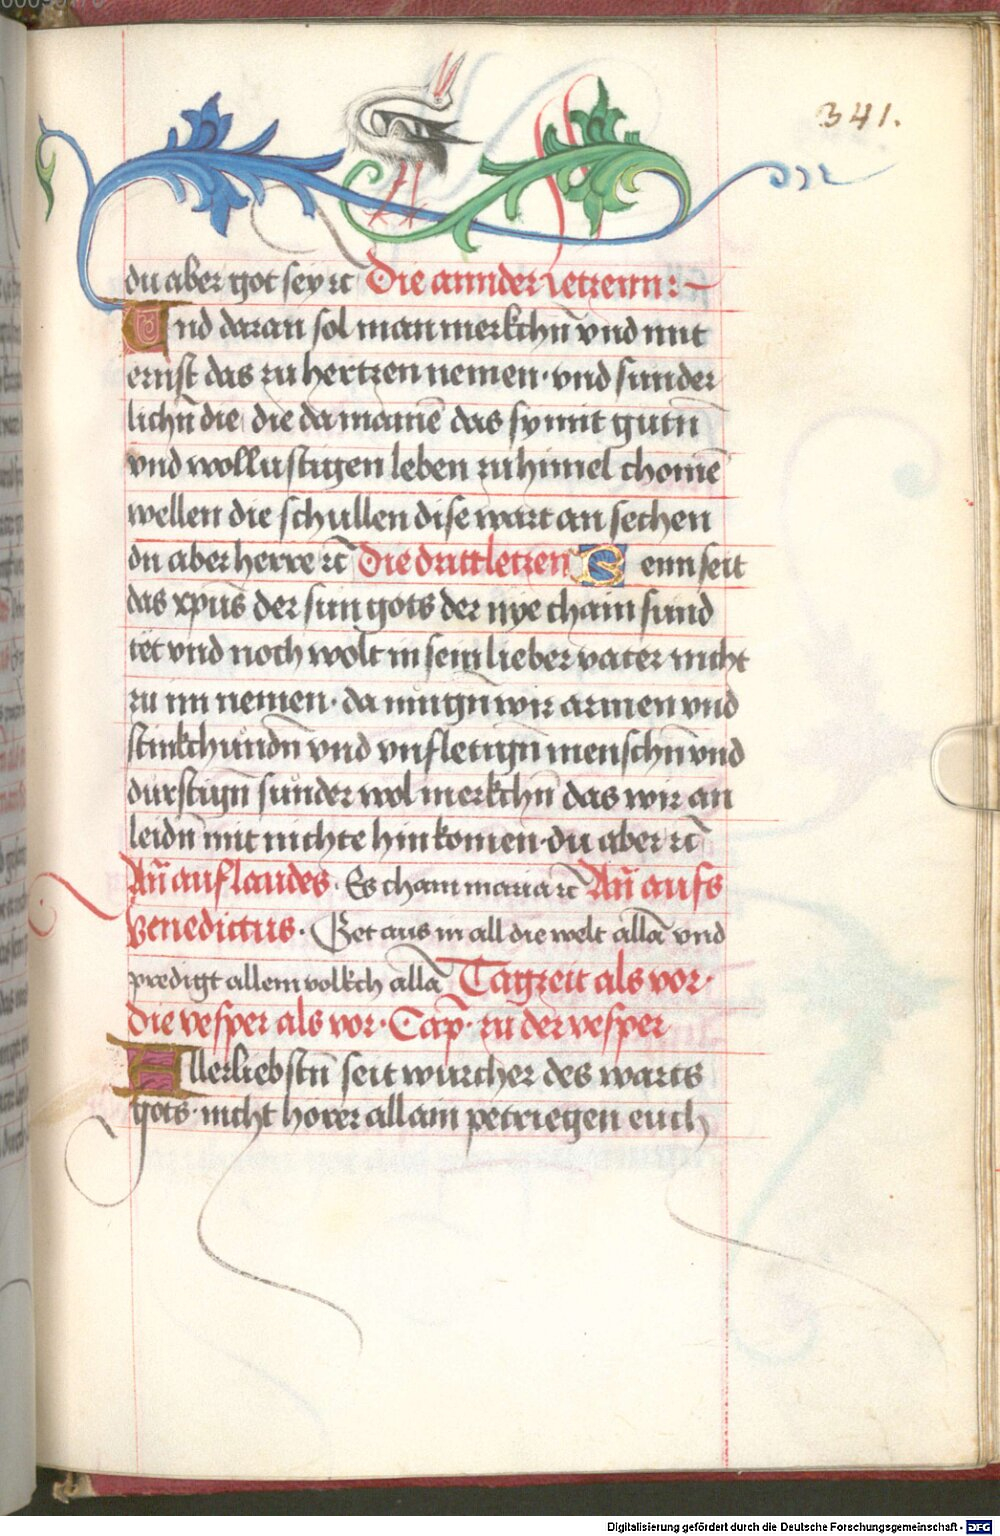 341.
du aber got sey rc Die annder letzenn :~
Vnd daran sol man merkchn̄ vnd mit
ernst das zu hertzen nemen · vnd sunder
lichn̄ die die da mainē das sy mit gutn̄
vnd wollustigen leben zu himel chomē
wellen die schullen dise wart an sechen
du aber herre rc̄ Die dritt letzen Denn seit
das xpūs der sun gots der nye chain sund
tet vnd noch wolt in sein lieber vater nicht
zu im nemen · da mugn̄ wir armen vnd
stinkchundn̄ vnd vnfletign̄ menschn̄ vnd
durstign̄ sunder wol merkchn̄ das wir an
leidn̄ mit nichte hin komen · du aber rc̄
An̄ auf laudes · Es cham maria rc̄ An̄ aufs
benedictus · Get aus in all die welt allā vnd
predigt allem volkch allā Tagzeit als vor ·
die vesper als vor · Cap̄ · zu der vesper
Allerliebstn̄ seit wurcher des warts
gots · nicht horer allain petriegen euch
Digitalisierung gefördert durch die Deutsche Forschungsgemeinschaft - DFG